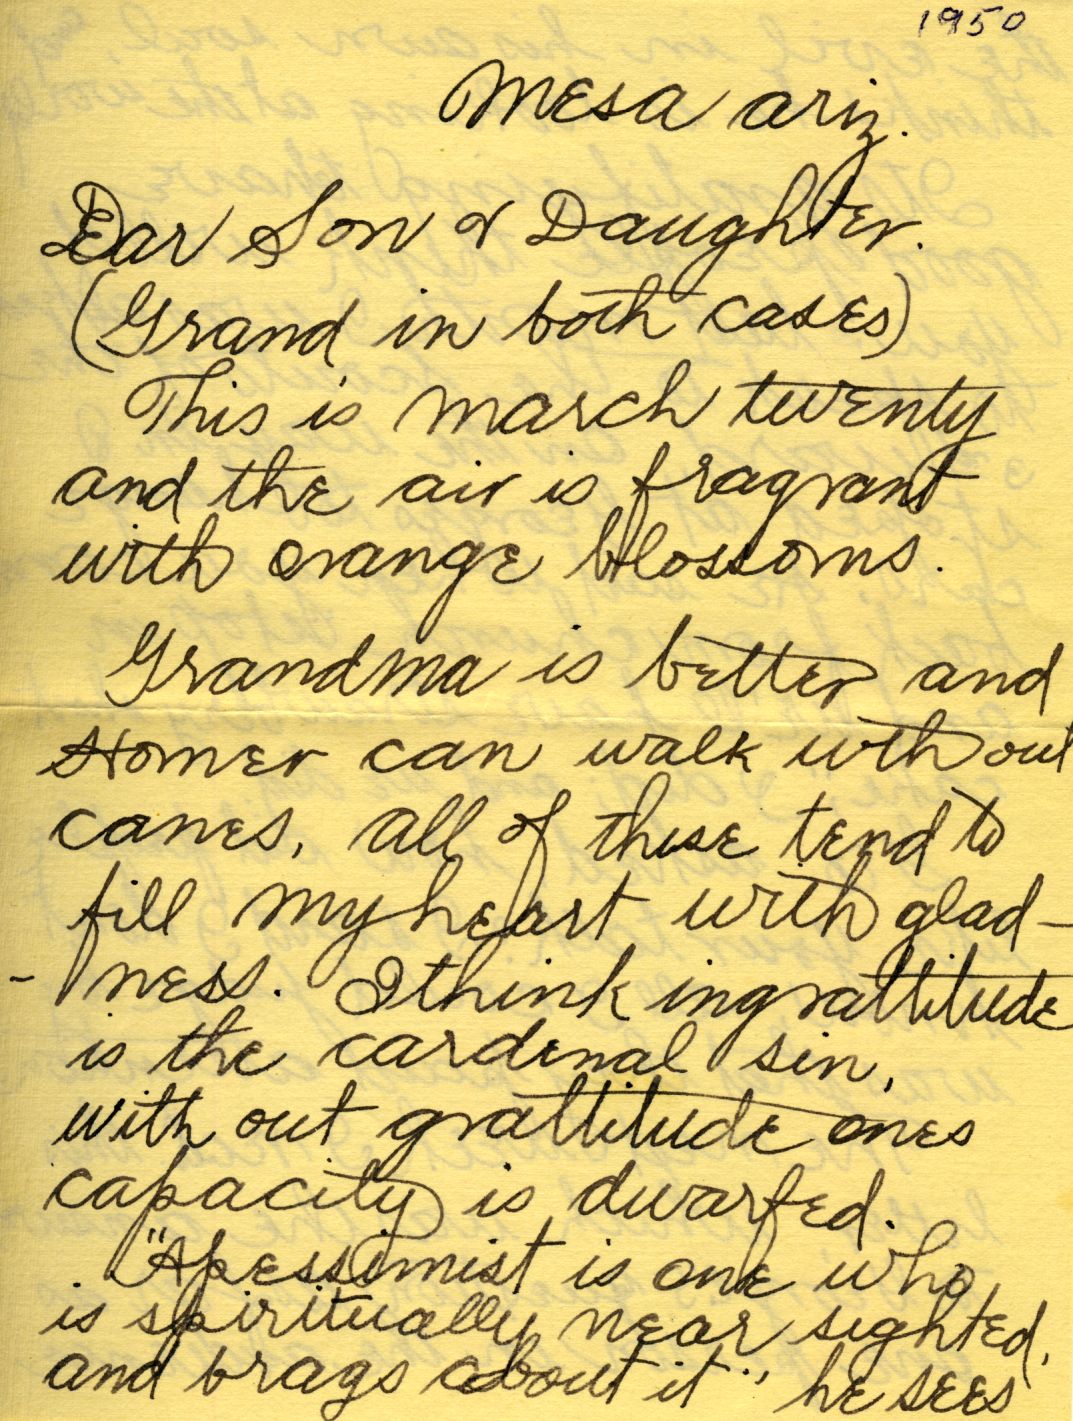 1950
Mesa Ariz.
Dear Son & Daughter.
(Grand in both cases)
This is March twenty
and the air is fragrant
with orange blossoms.
Grandma is better and
Homer can walk with out
canes, all of these tend to
fill my heart with glad-
-ness. I think ingrattitude
is the cardenal sin,
with out grattitude ones
capacity is dwarfed.
"A pessimist is one who
is spiritually near sighted,
and brags about it", he sees